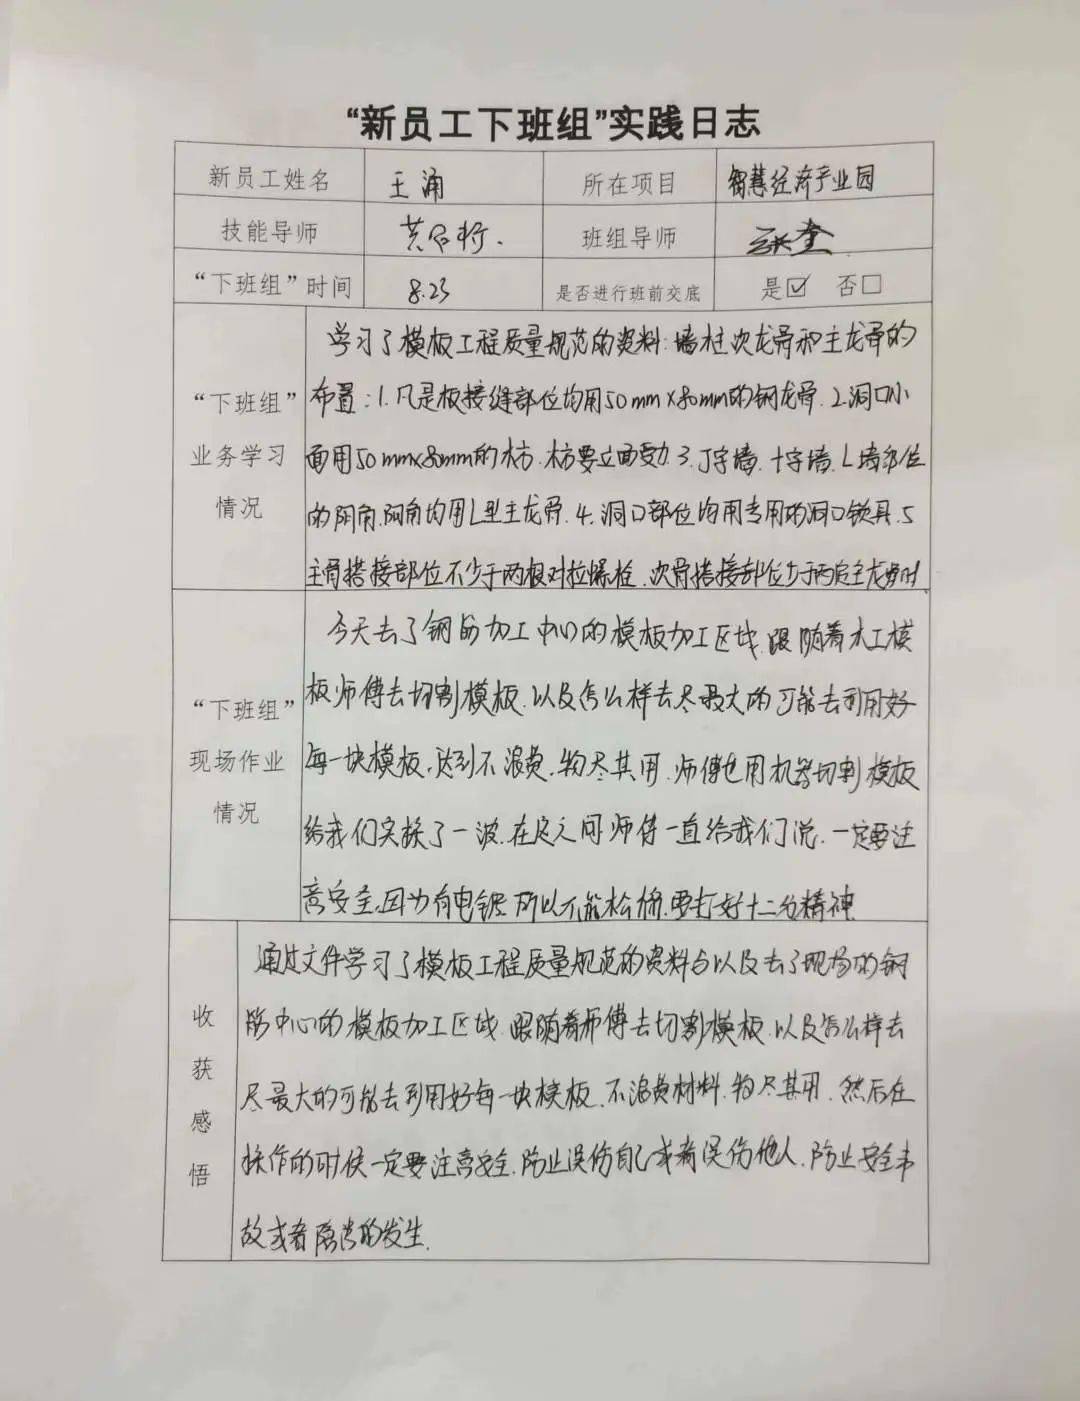 “新员工下班组”实践日志
新员工姓名 王涌 所在项目 智慧经济产业园
技能导师 班组导师 张奎
“下班组”时间 8.23 是否进行班前交底 是☑ 否☐
“下班组”业务学习情况
学习了模板工程质量规范的资料:墙柱次龙骨和主龙骨的
布置:1.凡是板接缝部位均用50mm×80mm的钢龙骨.2.洞口小
面用50mm×80mm的木方.木方要立面受力.3.丁字墙.十字墙.L墙部位
的阴角.阴角均用L型主龙骨.4.洞口部位均用专用的洞口锁具.5
主骨搭接部位不少于两根对拉螺栓.次骨搭接部位少于两
“下班组”现场作业情况
今天去了钢筋加工中心的模板加工区域.跟随着木工模
板师傅去切割模板.以及怎么样去尽最大的可能去利用好
每一块模板,达到不浪费,物尽其用.师傅也用机器切割模板
给我们实操了一波.在这之间师傅一直给我们说.一定要注
意安全,因为有电锯所以不能松懈.要打好十二分精神
收获感悟
通过文件学习了模板工程质量规范的资料以及去了现场的钢
筋中心的模板加工区域.跟随着师傅去切割模板.以及怎么样去
尽最大的可能去利用好每一块模板.不浪费材料.物尽其用.然后在
操作的时候一定要注意安全.防止误伤自己或者误伤他人.防止安全事
故或者隐患的发生.